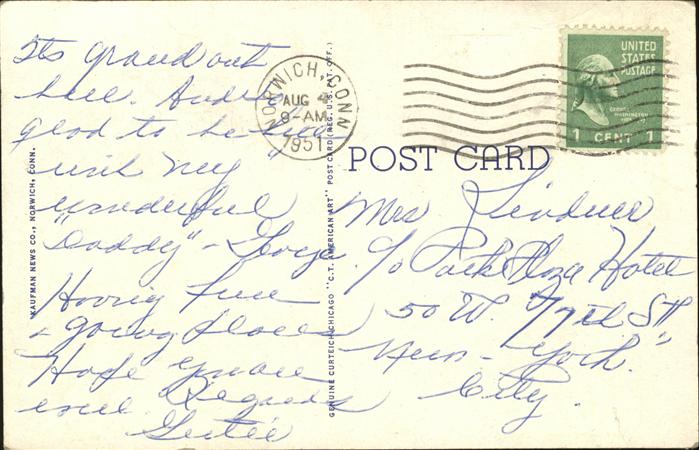 Its grand out
here. And
glad to be here
with my
wonderful
"Daddy" - George
Having fun
& going places
Hope you are
well. Regards
Gertie
KAUFMAN NEWS CO., NORWICH, CONN.
GENUINE CURTEICH-CHICAGO "C.T. AMERICAN ART" POST CARD (REG. U.S. PAT. OFF.)
NORWICH, CONN
AUG 4
9-AM
1951
UNITED
STATES
POSTAGE
GEORGE
WASHINGTON
1 CENT 1
POST CARD
Mrs Lindner
c/o Park Plaza Hotel
50 W. 77th St.
New - York
City.